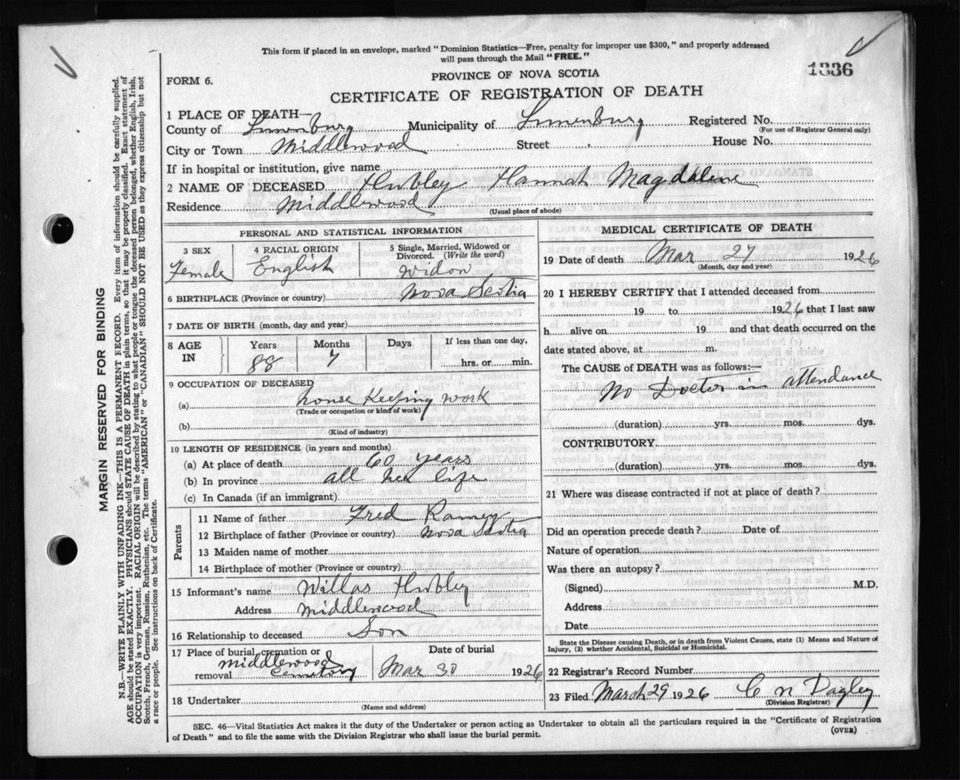 This form if placed in an envelope, marked "Dominion Statistics—Free, penalty for improper use $300," and properly addressed
will pass through the Mail "FREE."
1336
FORM 6.
PROVINCE OF NOVA SCOTIA
CERTIFICATE OF REGISTRATION OF DEATH
MARGIN RESERVED FOR BINDING
N.B.—WRITE PLAINLY WITH UNFADING INK—THIS IS A PERMANENT RECORD. Every item of information should be carefully supplied.
AGE should be stated EXACTLY. PHYSICIANS should STATE CAUSE OF DEATH in plain terms, so that it may be properly classified. Exact statement of
OCCUPATION is very important. RACIAL ORIGIN will be described by stating to what people or tongue the deceased person belonged, whether English, Irish,
Scotch, French, German, Russian, Ruthenian, etc. The terms "AMERICAN" or "CANADIAN" SHOULD NOT BE USED as they express citizenship but not
a race or people. See instructions on back of Certificate.
1 PLACE OF DEATH—
County of Lunenburg Municipality of Lunenburg Registered No.
(For use of Registrar General only)
City or Town Middlewood Street House No.
If in hospital or institution, give name
2 NAME OF DECEASED Hubley Hannah Magdalene
Residence Middlewood
(Usual place of abode)
PERSONAL AND STATISTICAL INFORMATION
3 SEX Female
4 RACIAL ORIGIN English
5 Single, Married, Widowed or
Divorced. (Write the word)
widow
6 BIRTHPLACE (Province or country) Nova Scotia
7 DATE OF BIRTH (month, day and year)
8 AGE IN Years Months Days If less than one day,
88 7 hrs. or min.
9 OCCUPATION OF DECEASED
(a) house Keeping work
(Trade or occupation or kind of work)
(b)
(Kind of industry)
10 LENGTH OF RESIDENCE (in years and months)
(a) At place of death 60 years
(b) In province all her life
(c) In Canada (if an immigrant)
Parents
11 Name of father Fred Ramey
12 Birthplace of father (Province or country) Nova Scotia
13 Maiden name of mother
14 Birthplace of mother (Province or country)
15 Informant's name Willas Hubley
Address Middlewood
16 Relationship to deceased Son
17 Place of burial, cremation or
removal middlewood cemetery
Date of burial
Mar 30 1926
18 Undertaker
(Name and address)
MEDICAL CERTIFICATE OF DEATH
19 Date of death Mar 27 1926
(Month, day and year)
20 I HEREBY CERTIFY that I attended deceased from
19 to 1926 that I last saw
h alive on 19 and that death occurred on the
date stated above, at m.
The CAUSE of DEATH was as follows:—
No Doctor in attendance
(duration) yrs. mos. dys.
CONTRIBUTORY
(duration) yrs. mos. dys.
21 Where was disease contracted if not at place of death?
Did an operation precede death? Date of
Nature of operation
Was there an autopsy?
(Signed) M.D.
Address
Date
State the Disease causing Death, or in death from Violent Causes, state (1) Means and Nature of
Injury, (2) whether Accidental, Suicidal or Homicidal.
22 Registrar's Record Number
23 Filed March 29 1926 C N Dagley
(Division Registrar)
SEC. 46—Vital Statistics Act makes it the duty of the Undertaker or person acting as Undertaker to obtain all the particulars required in the "Certificate of Registration
of Death" and to file the same with the Division Registrar who shall issue the burial permit.
(OVER)